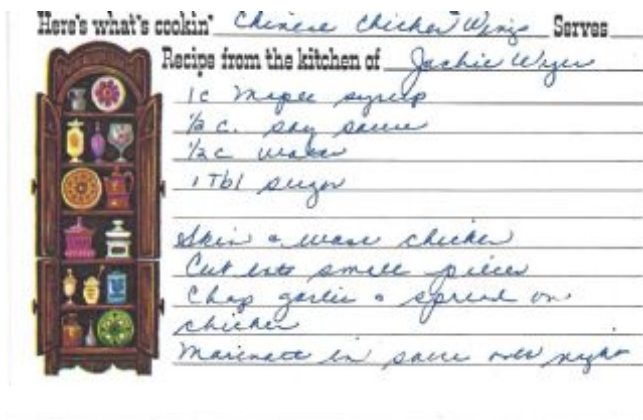 Here's what's cookin' Chinese Chicken Wings Serves
Recipe from the kitchen of Jackie Wyer
1c Maple syrup
1/2 c. soy sauce
1/2 c water
1 Tbl sugar
Skin & wash chicken
Cut into small pieces
Chop garlic & spread on
chicken
Marinate in sauce over night